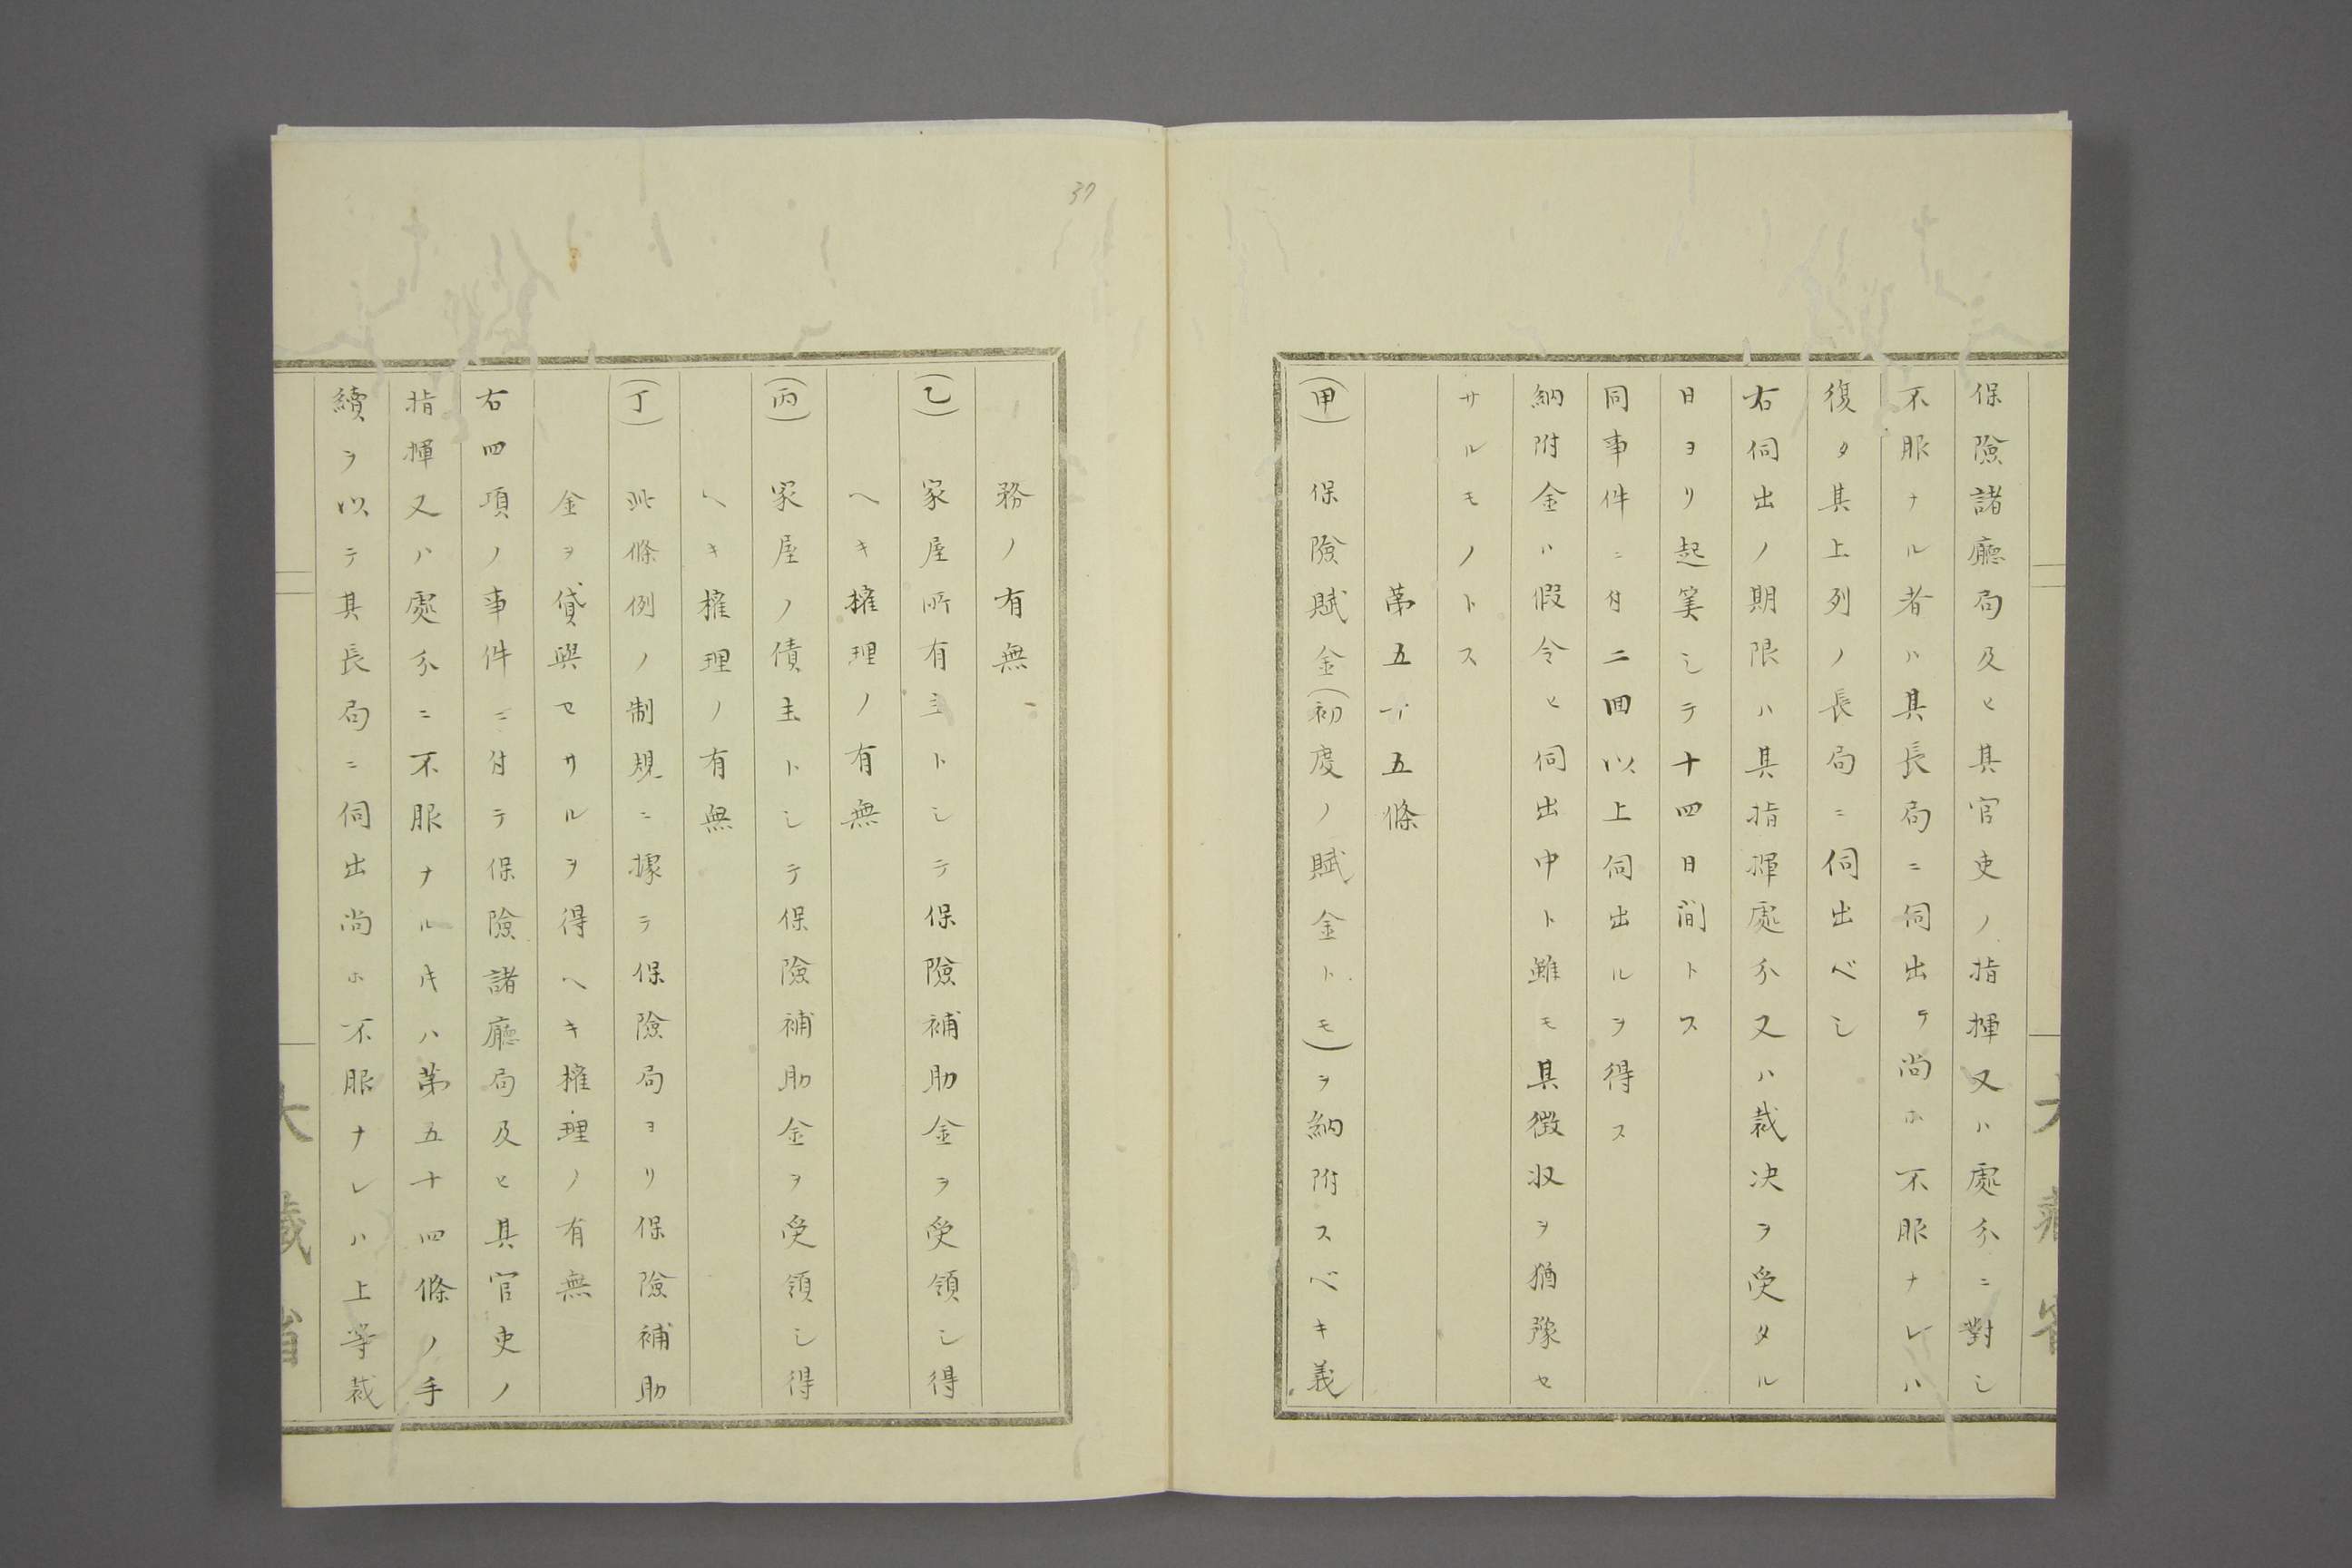 保險諸廳局及ヒ其官吏ノ指揮又ハ處分ニ對シ
不服ナル者ハ其長局ニ伺出テ尚ホ不服ナレハ
復タ其上列ノ長局ニ伺出ベシ
右伺出ノ期限ハ其指揮處分又ハ裁决ヲ受タル
日ヨリ起筭シテ十四日間トス
同事件ニ付二回以上伺出ルヲ得ス
納附金ハ假令ヒ伺出中ト雖モ其徴収ヲ猶豫セ
サルモノトス
第五十五條
(甲)保險賦金(初度ノ賦金トモ)ヲ納附スベキ義
務ノ有無
(乙)家屋所有主トシテ保險補助金ヲ受領シ得
ヘキ權理ノ有無
(丙)家屋ノ債主トシテ保險補助金ヲ受領シ得
ヘキ權理ノ有無
(丁)此條例ノ制規ニ據テ保險局ヨリ保險補助
金ヲ貸與セサルヲ得ヘキ權理ノ有無
右四項ノ事件ニ付テ保險諸廳局及ヒ其官吏ノ
指揮又ハ處分ニ不服ナルキハ第五十四條ノ手
續ヲ以テ其長局ニ伺出尚ホ不服ナレハ上等裁
大藏省
37